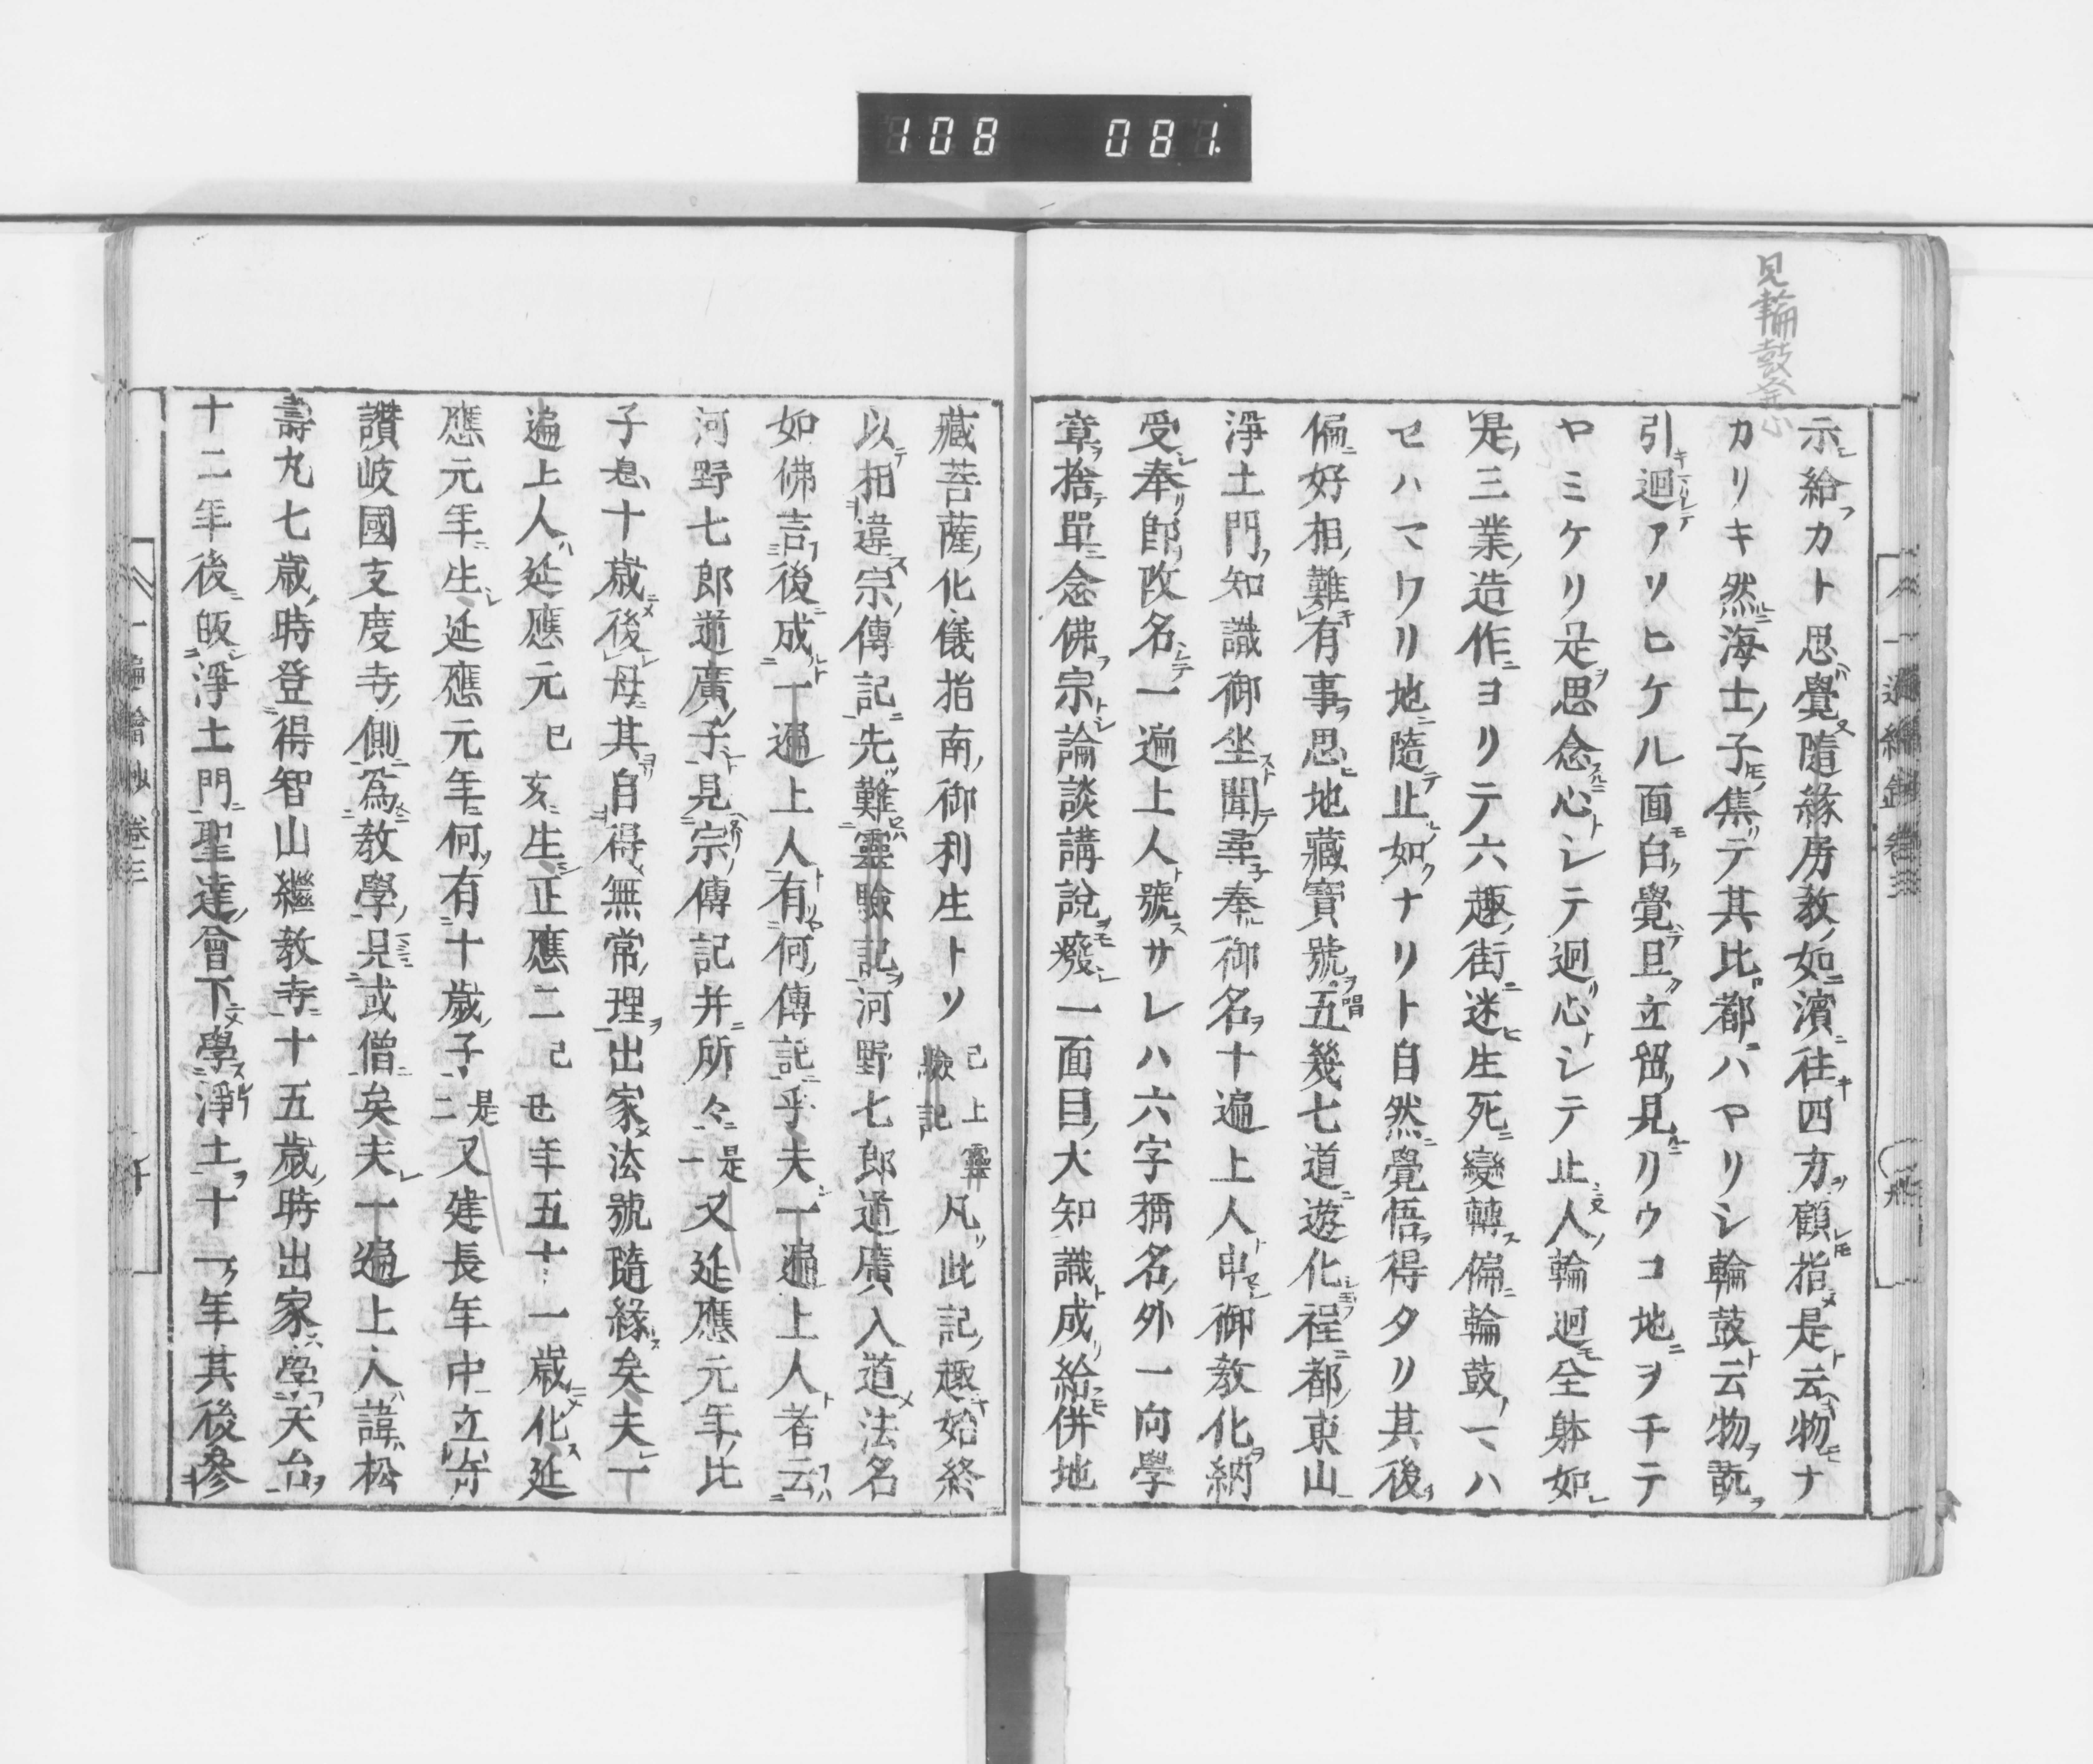 108 081
見輪鼓発心
示シ給フカト思ハ覺ヌ隨緣房教ノ如ニ濱ニ往キ四方ヲ顧レ𪜈指メ是ト云ヘキ物モナ
カリキ然ルニ海士ノ子𪜈集リテ其比都ニハヤリシ輪鼓ト云物ヲ翫ヲ
引キ廻シテアソヒケル面白モノ覺テ且ク立留リ見ルニリウコ地ニヲチテ
ヤミケリ是ヲ思念スルニ心トシテ廻リ心トシテ止ヌ人ノ輪迴モ全躰如レ
是ノ三業ノ造作ニヨリテ六趣ノ街ニ迷ヒ生死ニ變轉ス偏ニ輪鼓ノマハ
セハマワリ地ニ隨テ止ルカ如クナリト自然ニ覺悟ヲ得タリ其後ヲ
偏ニ好相ノ難キ有事ヲ思ヒ地藏寶號ヲ唱五幾七道ニ遊化シ玉フ程ニ都ノ東山ニ
淨土門ノ知識御坐スト聞テ尋子奉ル御名ヲ十遍上人ト申マシ御教化ヲ納
受シ奉リ即ヲ改名シテ一遍上人ト號スサレハ六字稱名ノ外一向學
章ヲ捨テ單ニ念佛ヲ宗トシ論談講說ヲモ癈シ一面目ノ大知識ト成リ給モ併地
藏菩薩ノ化儀指南ノ御利生トソ已上靈驗記凡ソ此記ノ趣キ始終
以テ相違ス宗ノ傳記ニ先ツ難靈驗記ヲ河野七郎通廣入道メ法名
如佛言フ後ニ成ルト一遍上人ト有リヤ何ノ傳記ニ乎夫レ一遍上人ト者云フハ
河野七郎通廣ノ子ト見ヘタリ宗ノ傳記并ニ所々ニ是一又延應元年ノ比
子息十歲ニメ後レ母ニ其ヨリ自得メ無常ノ理ヲ出家メ法號隨緣ス矣夫レ一
遍上人ハ延應元己亥ニ生シ正應二己丑年五十一歲ニメ化ス延
應元年ニ生レ延應元年ニ何ソ有ン十歲ノ子二是又建長年中立寄
讚岐國支度寺ノ側ニ爲ニ教學ノ見ニ或僧ニ矣夫レ一遍上人ハ諱ハ松
壽丸七歲ノ時登ニ得智山繼教寺ニ十五歲ノ時出家メ學フ天台ヲ
十二年後ニ皈シ淨土門ニ聖達ノ會下ニ文學スレ淨土ヲ十一ケ年其後參
一遍繪抄卷三